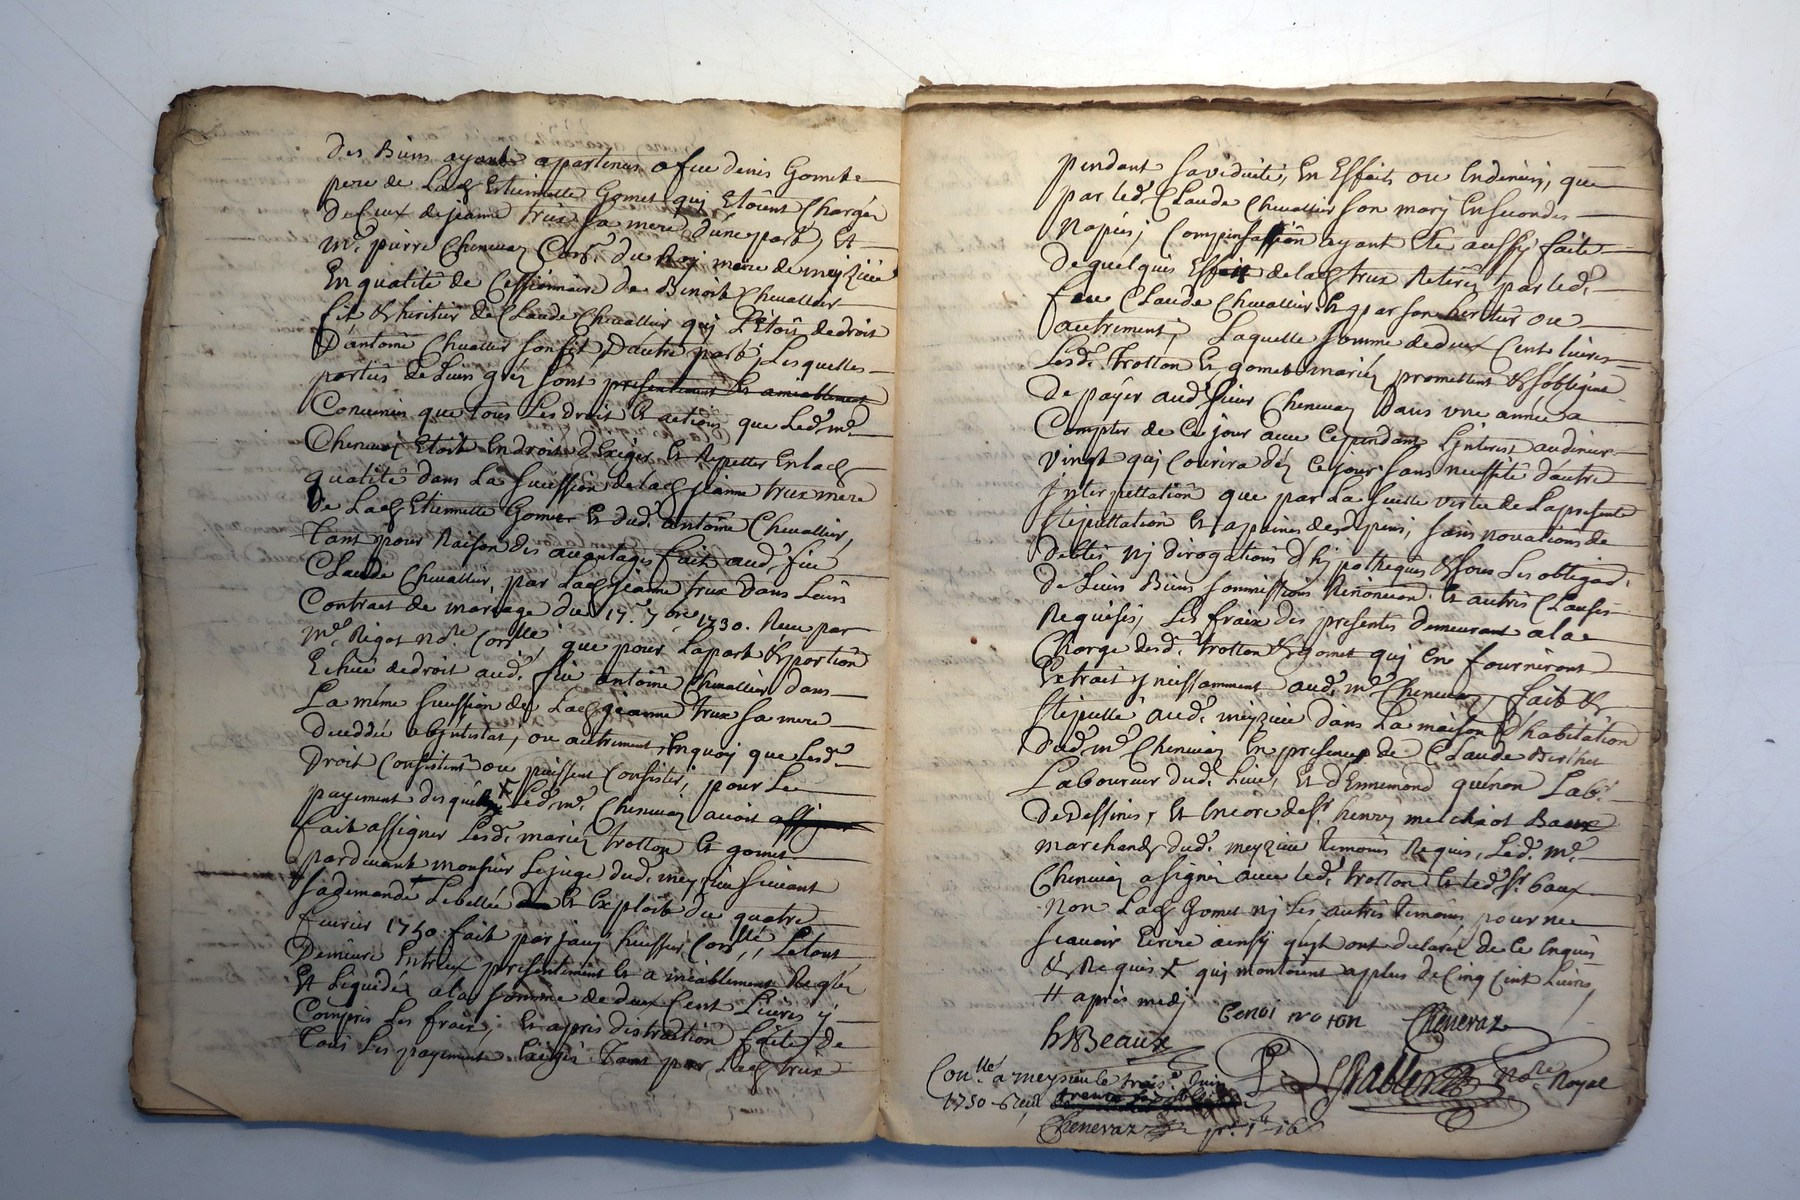 Des Biens ayant appartenus a feu denis Gomet
pere de Lad Estiennette Gomet quj Etoient Chargés
de Ceux de jeanne trux sa mere d'une part, Et
Mr. pierre Cheneuaz du Roj meyzieu
En qualité de Cessionnaire de Benoit Cheuallier
fil & heritier de Claude Cheuallier quj L'Etoit de droit
D'antoine Cheuallier son fil, d'autre part, Lesquelles
parties de Leurs grés sont presentement Et amiablement
Conuenues que tous Les droit Et actions que Led. mr.
Cheneuaz Etoit En droit d'Exiger Et Repetter En lad
qualité dans La succession de lad jeanne trux mere
De Lad Etiennette Gomet Et dud. antoine Cheuallier,
tant pour Raison des auantages fait aud. feu
Claude Cheuallier, par Lad jeanne trux dans Leurs
Contract de mariage du 17e. 7bre 1730. Receu par
Me. Rigot Nore., que pour La part & portion
Echeüe de droit aud. feu antoine Cheuallier dans
La même succession de Lad jeanne trux sa mere
Decedée abjntestat, ou autrement, En quoj que Lesd.
Droit Consistent ou puissent Consister, pour Le
payement desquels Led. mr. Cheneuaz auoit
fait assigner Lesd. mariés trotton Et gomet
pardeuant monsieur Le juge dud. meyzieu suiuant
sa demande Libellée Et Exploit du quatre
feurier 1750 fait par huissier, Le tout
Demeure Entreux presentement Et amiablement Reglé
Et Liquidé a la somme de deux Cent Liures y
Compris Les fraix; Et apres distraction faite de
Tous Les payements tant par Lad trux
pendant sa viduité, En Effaits ou En deniers, que
par led. Claude Cheuallier son marj En secondes
Nopces; Compensation ayant Eté aussy faite
De quelques Effait de lad trux Retirés par led.
feu Claude Cheuallier Et par son heritier ou
autrement, Laquelle somme de deux Cent liures
Lesd. trotton Et gomet mariés promettent & s'obligent
De payer aud sieur Cheneuaz Dans vne année a
Compter de Ce jour auec Cependant L'jnterest au denier
vingt quj Courira dés Ce jour sans necessité d'autre
jnterpellation que par La seulle vertu de La presente
stipullation Et a peines de depens; sans nouations de
debtes nj dérogations d'hypotheques & sous Les obligaõ.
De Leurs Biens sommissions Renonciaõ. Et autres Clauses
Requises, Les fraix des presentes demeurant a la
Charge desd. trotton & gomet quj En fourniront
Extrait aud. mr. Cheneuaz, fait &
stipullé aud. meyzieu dans La maison d'habitation
Dud. mr. Cheneuaz En presence de Claude Berthet
Laboureur dud. Lieu, Et d'Ennemond quénon Labr.
De Dessines, Et Encore de sr. henry
marchand dud. meyzieu temoins Requis, Led. mr.
Cheneuaz a signé auec led. trotton Et led. sr. baux
Non Lad Gomet nj Les autres temoins pour ne
scauoir Ecrire ainsy qu'jl ont declarés de Ce Enquis
& Requis X quj montoient a plus de Cinq Cent Liures,
# apres medj
Benoi troton Cheneraz
h Beaux
Conllé a meysieu le troise. juin
1750
Nore Royal
Cheneraz